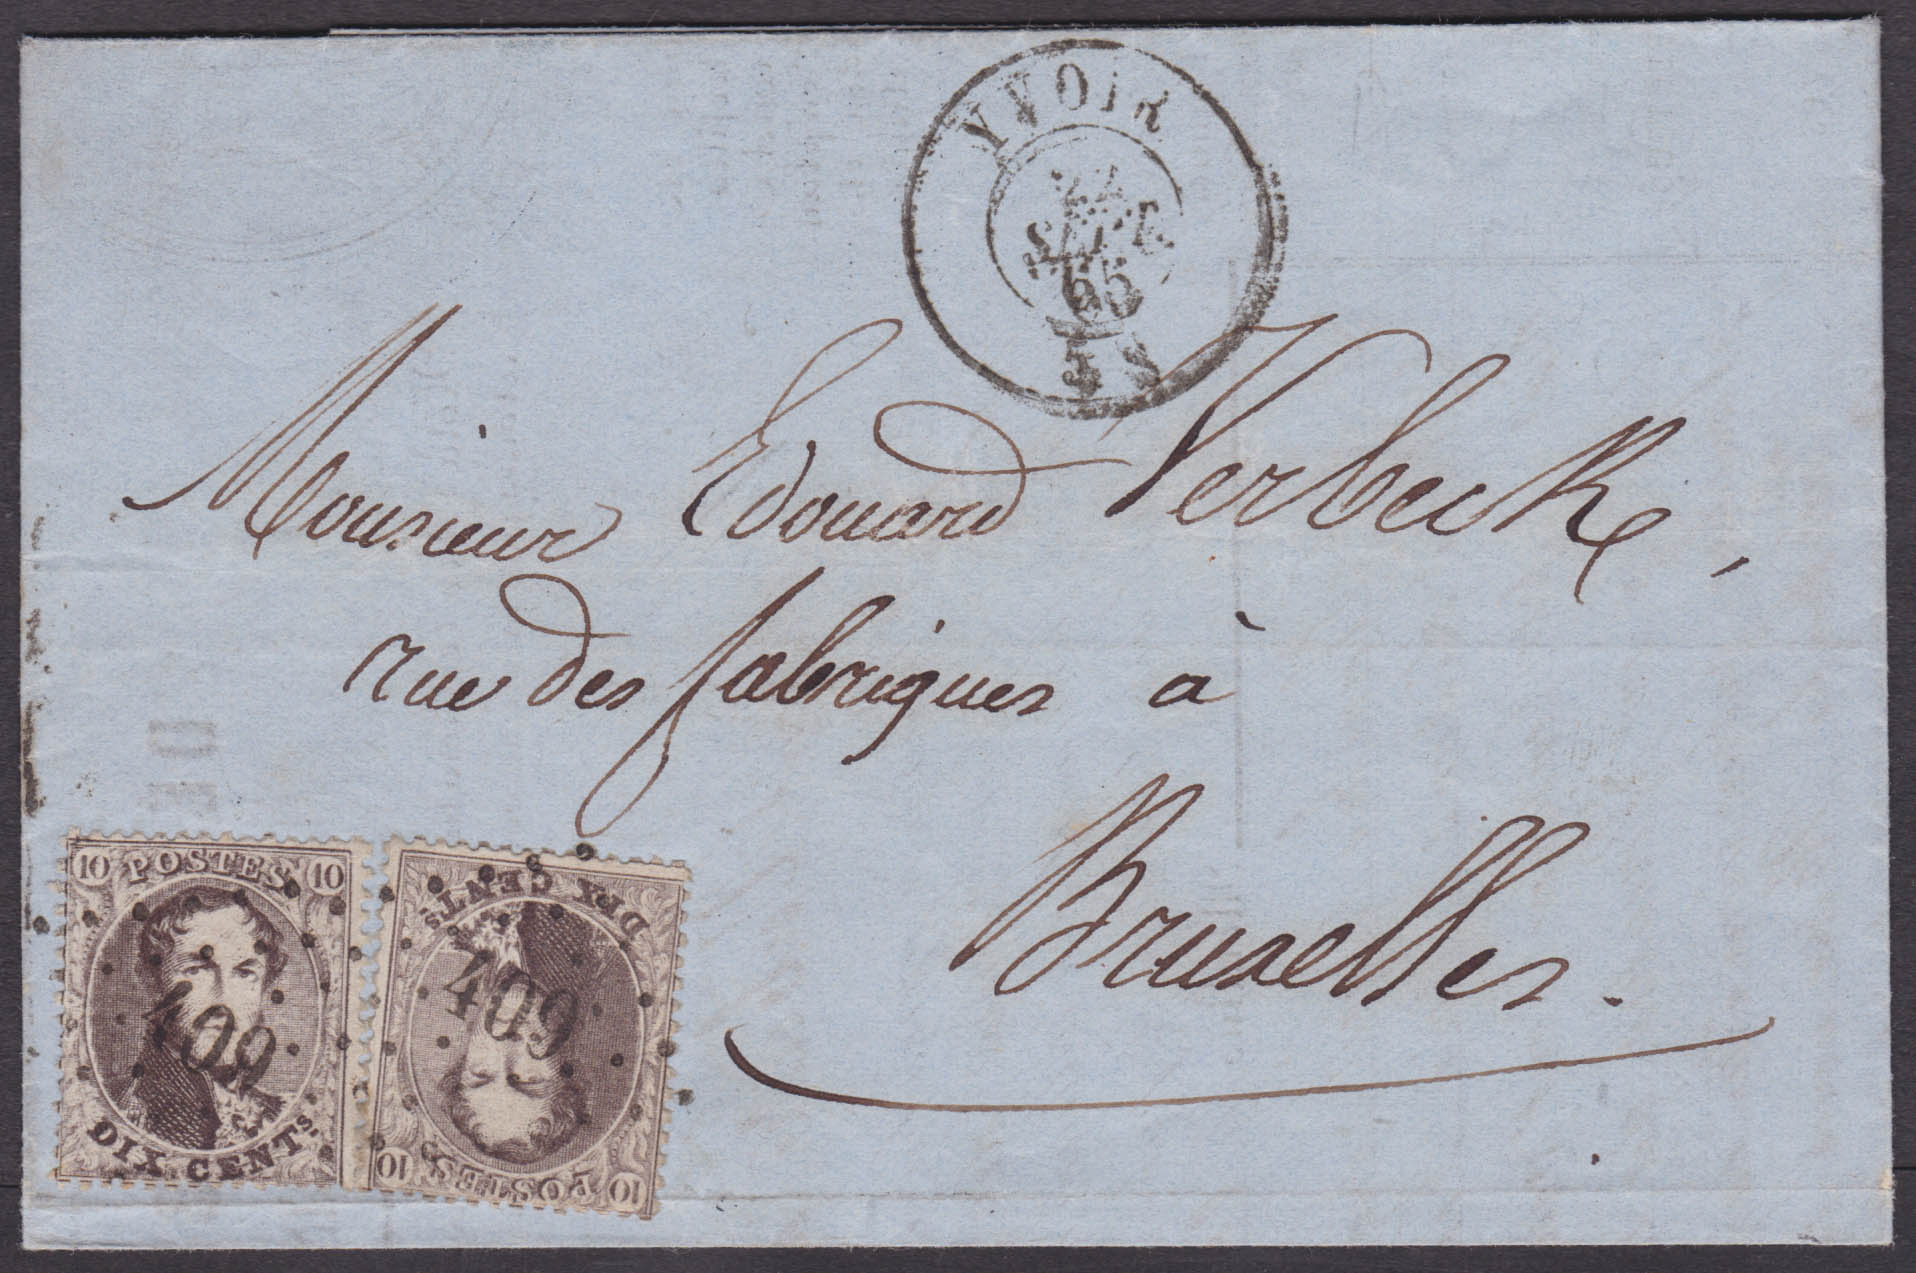 YVOIR
22
SEPT.
65
5 S
Monsieur Edouard Verbeck,
rue des fabriques à
Bruxelles.
10 POSTES 10
409
DIX CENTS.
DIX CENTS.
409
10 POSTES 10